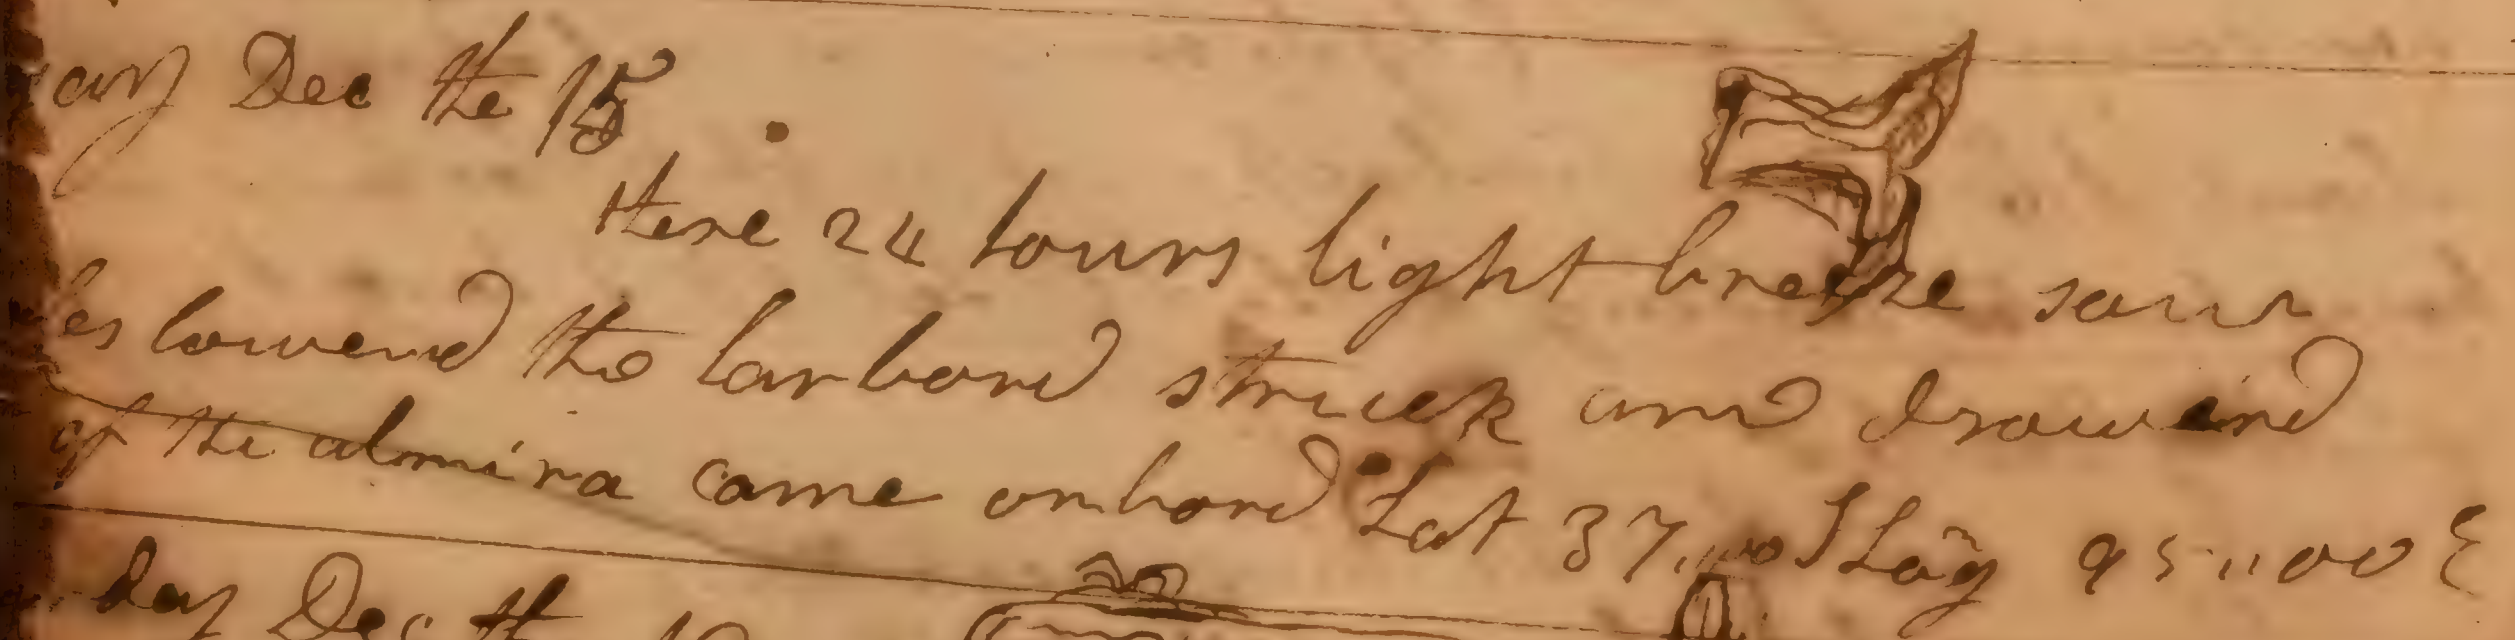 day Dec the 15
these 24 hours light breeze saw
les lowerd the larbord struck and drawind
of the almira came onbord Lat 37,,00 S Log 95,,00 E
day Dec th